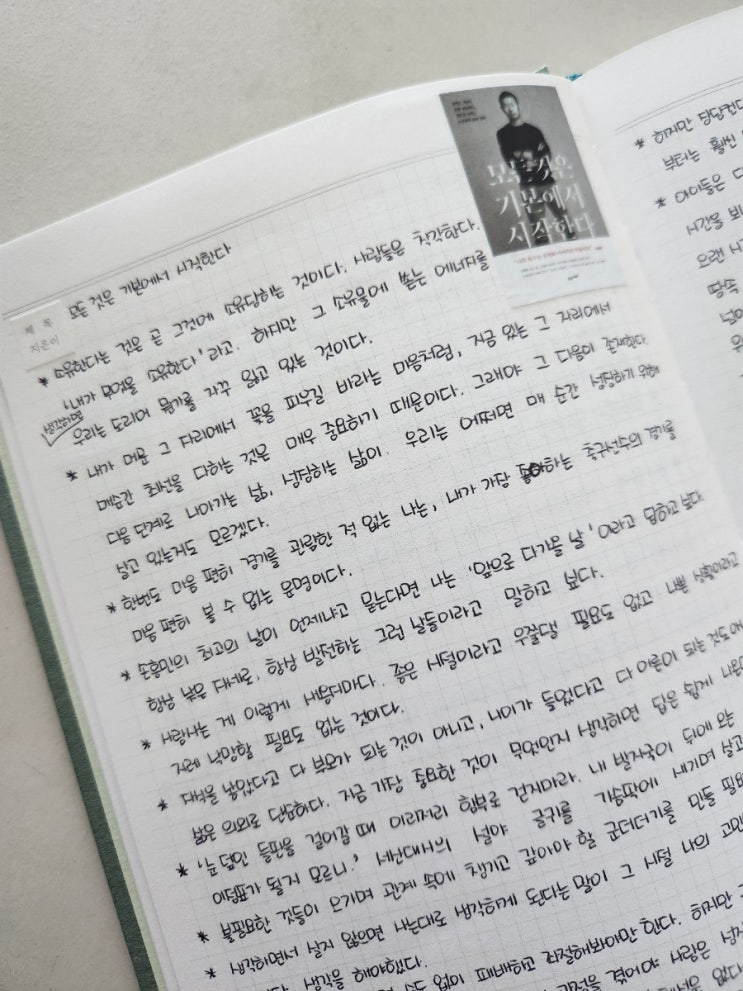 모든 것은
기본에서
시작한다
제목
지은이
모든 것은 기본에서 시작한다
* 소유한다는 것은 곧 그것에 소유당하는 것이다. 사람들은 착각한다.
'내가 무엇을 소유한다'라고. 하지만 그 소유물에 쏟는 에너지를
생각하면
우리는 도리어 뭔가를 자꾸 잃고 있는 것이다.
* 내가 머문 그 자리에서 꽃을 피우길 바라는 마음처럼, 지금 있는 그 자리에서
매순간 최선을 다하는 것은 매우 중요하기 때문이다. 그래야 그 다음이 존재한다.
다음 단계로 나아가는 삶, 성장하는 삶이. 우리는 어쩌면 매 순간 성장하기 위해
살고 있는지도 모르겠다.
* 한번도 마음 편히 경기를 관람한 적 없는 나는, 내가 가장 좋아하는 축구선수의 경기를
마음 편히 볼 수 없는 운명이다.
* 손흥민의 최고의 날이 언제냐고 묻는다면 나는 '앞으로 다가올 날'이라고 답하고 싶다.
항상 낮은 자세로, 항상 발전하는 그런 날들이라고 말하고 싶다.
* 사람사는 게 이렇게 새옹지마다. 좋은 시절이라고 우쭐댈 필요도 없고 나쁜 상황이라고
지레 낙망할 필요도 없는 것이다.
* 자식을 낳았다고 다 부모가 되는 것이 아니고, 나이가 들었다고 다 어른이 되는 것도
삶은 의외로 단순하다. 지금 가장 중요한 것이 무엇인지 생각하면 답은 쉽게 나온
* '눈 덮인 들판을 걸어갈 때 이리저리 함부로 걷지마라. 내 발자국이 뒤에 오는
이정표가 될지 모르니.' 서산대사의 글귀를 가슴팍에 새기며 살고
* 불필요한 것들이 오가며 관계 속에 챙기고 갚아야 할 군더더기를 만들 필요
* 생각하면서 살지 않으면 사는대로 생각하게 된다는 말이 그 시절 나의 고민
생각을 해야했다.
수도 없이 패배하고 좌절해봐야만 한다. 하지만
과정을 겪어야 사람은
* 하지만 당당컨대
부터는 훨씬
* 아이들은
시간을
오랜
땅속